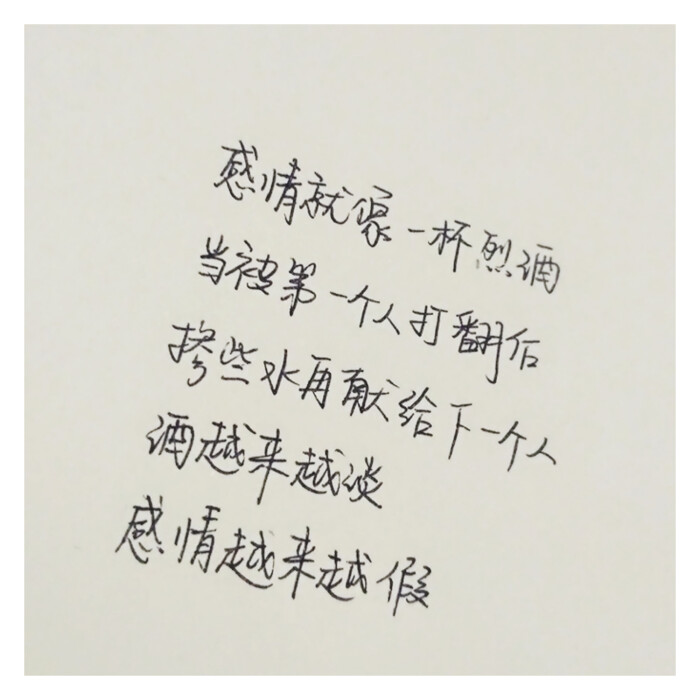 感情就像一杯烈酒
当被第一个人打翻后
掺些水再献给下一个人
酒越来越淡
感情越来越假